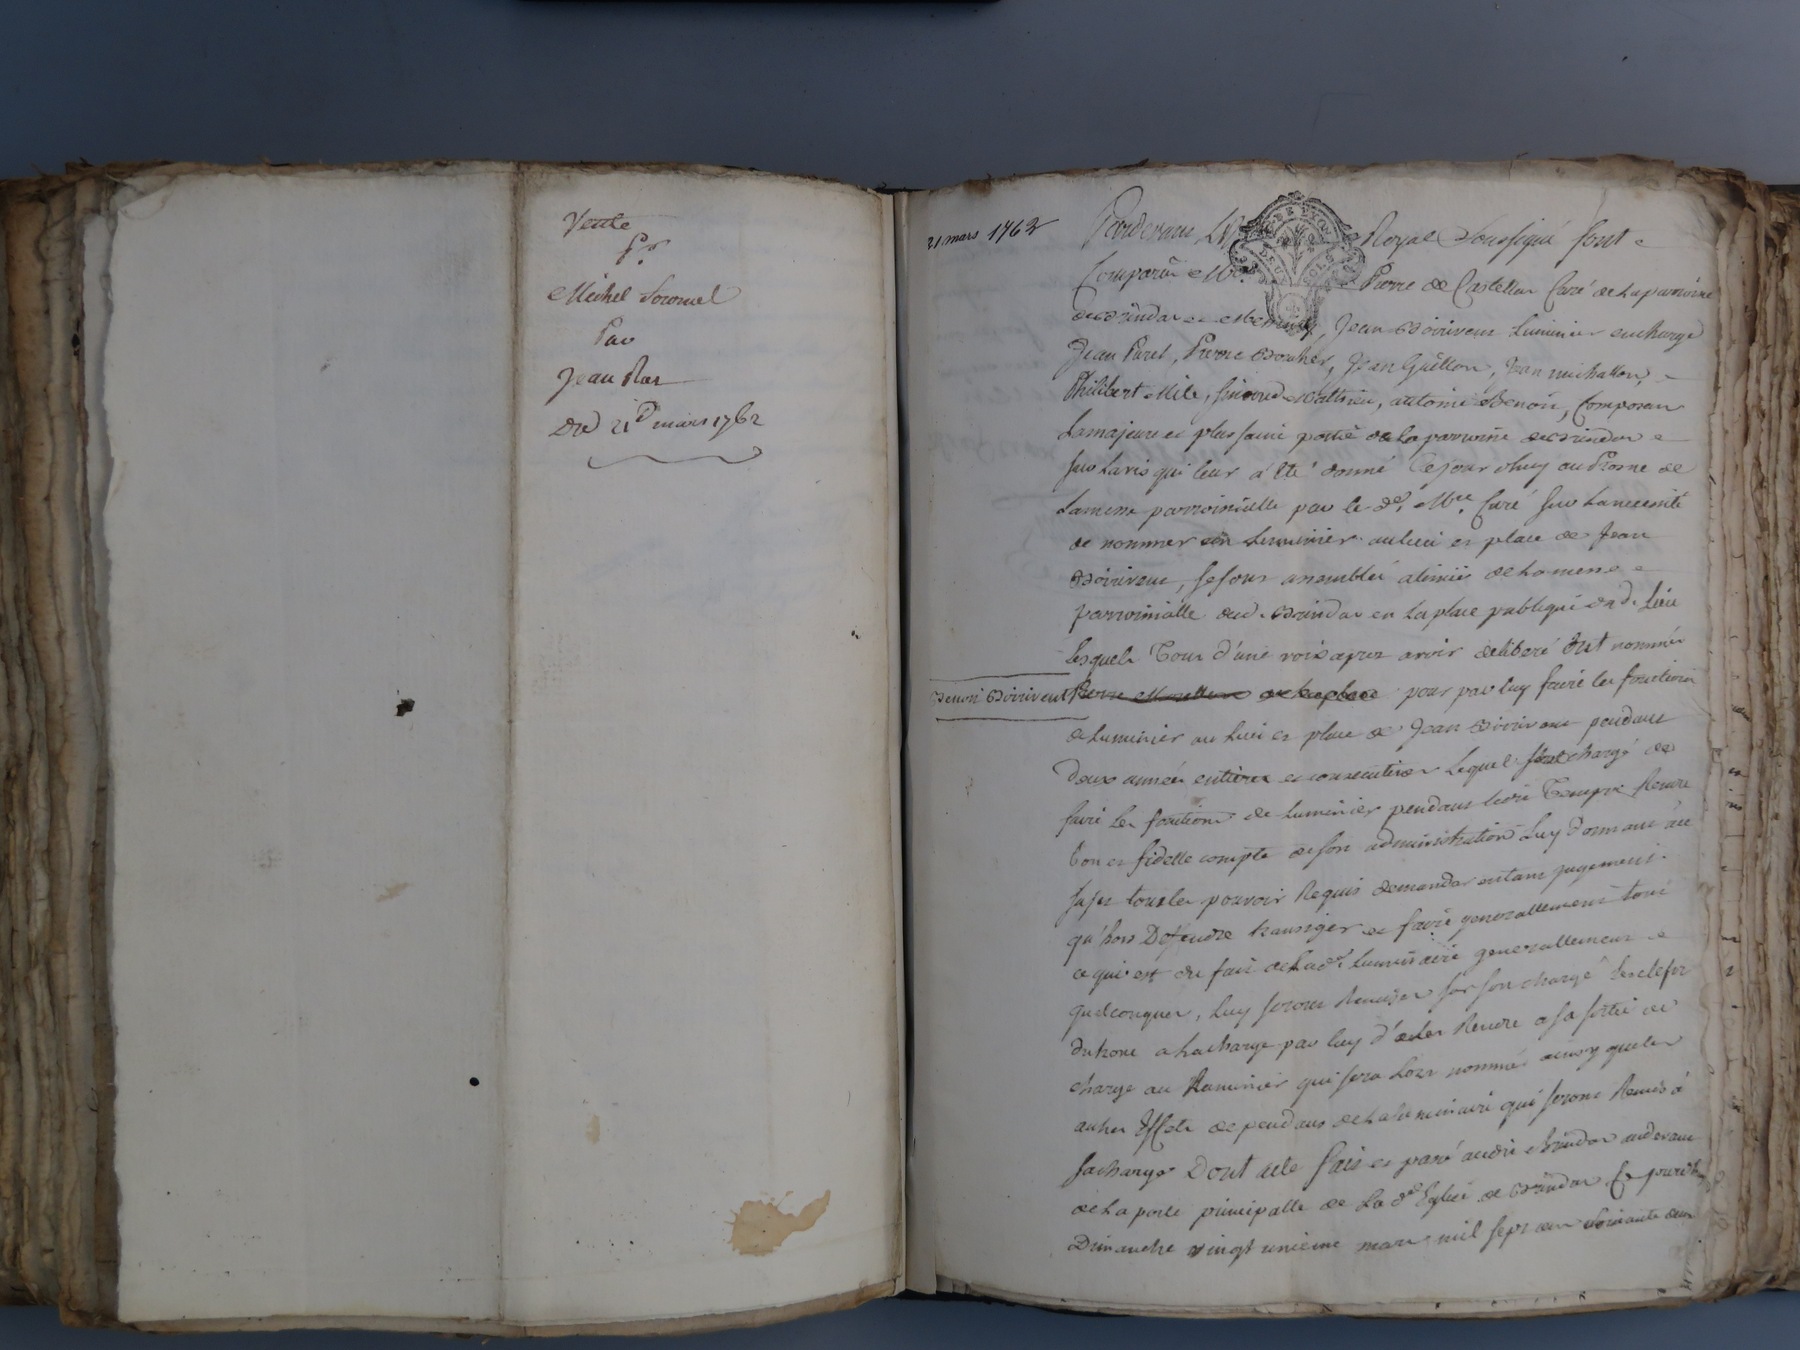 Vente
Pr
Michel
Par
Jean
Du 21e mars 1762
21 mars 1762
Pardevant Royal soussigné sont
Comparu Mre Pierre de Castellar Curé de la parroisse
de Brindas et Messimy, Jean Boiriven Luminier en charge
Jean Paret, Pierre Boucher, Jean Guillon, Jean michallon,
Philibert Mile, Mathieu, antoine Benoit, Composan
La majeure et plus saine partie de la parroisse de Brindas
sur Lavis qui leur a été donné Ce jourdhuy au Prosne de
La messe parroissialle par le dt Mre Curé sur La necessité
de nommer un Luminier au lieu et place de Jean
Boirivent, se sont assemblés a lissue de la messe
parroissialle dud. Brindas en La place publique dud. Lieu
Lesquels Tous d'une voix apres avoir deliberé Ont nommés
Benoit Boirivent
Pierre de la place pour par luy faire les fonctions
de Luminier au Lieu et place de Jean Boirivent pendant
Deux années entieres et consecutives Lequel sera chargé de
faire les fonctions de Luminier pendant ledit Temps Rendre
bon et fidelle compte de son administration Luy donnant a ce
sujet tous les pouvoir Requis demander en tant jugement
qu'hors Deffendre transiger et faire generallement tout
ce qui est du fait de Lad. Luminaire generallement
quelconques, Luy seront Remises sur son chargé les clefs
du trone a la charge par luy d'icelles Rendre a sa sortie de
charge au Luminier qui sera Lors nommé ainsy que les
autres Effets dependans de la Luminaire qui seront Remis à
sa charge Dont acte fait et passé audit Brindas audevant
de La porte principalle de La de Eglise de Brindas Ce jourdhuy
Dimanche vingt unieme mars mil sept cen soixante deux